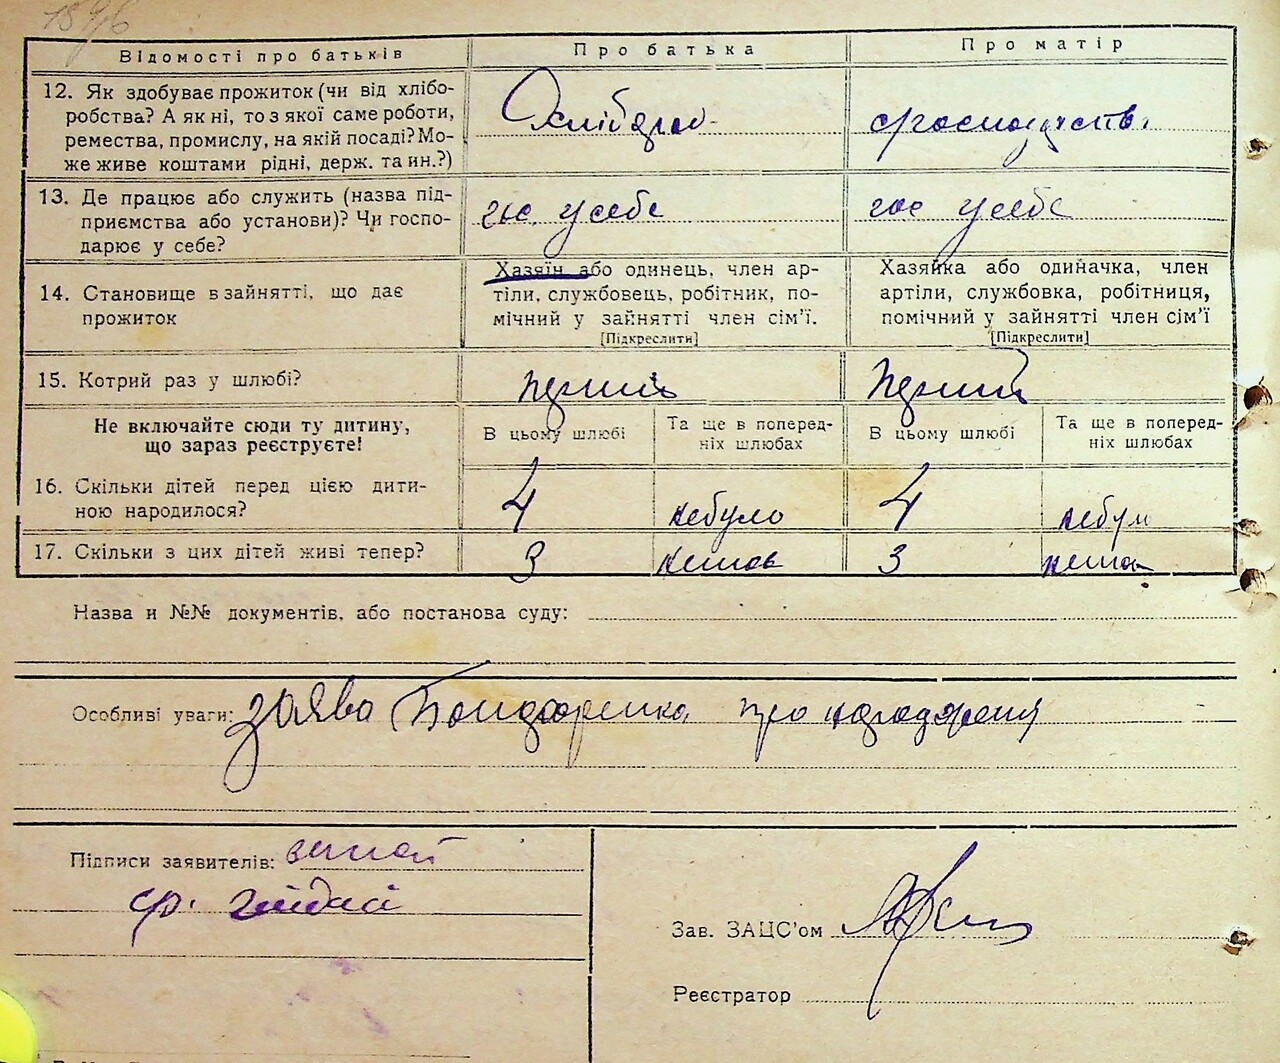 1896
Відомості про батьків
Про батька
Про матір
12. Як здобуває прожиток (чи від хлібо-
робства? А як ні, то з якої саме роботи,
ремества, промислу, на якій посаді? Мо-
же живе коштами рідні, держ. та ин.?)
Хлібороб
госпо
13. Де працює або служить (назва під-
приємства або установи)? Чи госпо-
дарює у себе?
у себе
у себе
14. Становище в зайнятті, що дає
прожиток
Хазяїн або одинець, член ар-
тіли, службовець, робітник, по-
мічний у зайнятті член сім'ї.
[Підкреслити]
Хазяйка або одиначка, член
артіли, службовка, робітниця,
помічний у зайнятті член сім'ї
[Підкреслити]
15. Котрий раз у шлюбі?
перший
перший
Не включайте сюди ту дитину,
що зараз реєструєте!
В цьому шлюбі
Та ще в поперед-
ніх шлюбах
В цьому шлюбі
Та ще в поперед-
ніх шлюбах
16. Скільки дітей перед цією дити-
ною народилося?
4
небуло
4
небуло
17. Скільки з цих дітей живі тепер?
3
3
Назва и №№ документів, або постанова суду:
Особливі уваги: заява Бондаренка про народження
Підписи заявителів:
Зав. ЗАЦС'ом
Реєстратор